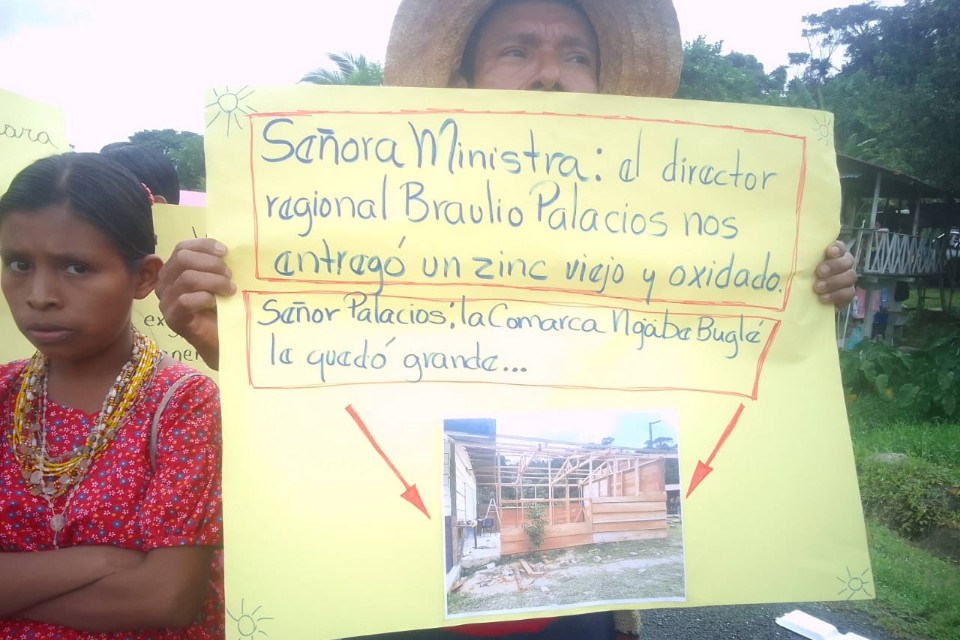 Señora Ministra: el director
regional Braulio Palacios nos
entregó un zinc viejo y oxidado.
Señor Palacios; la Comarca Ngäbe Buglé
le quedó grande...